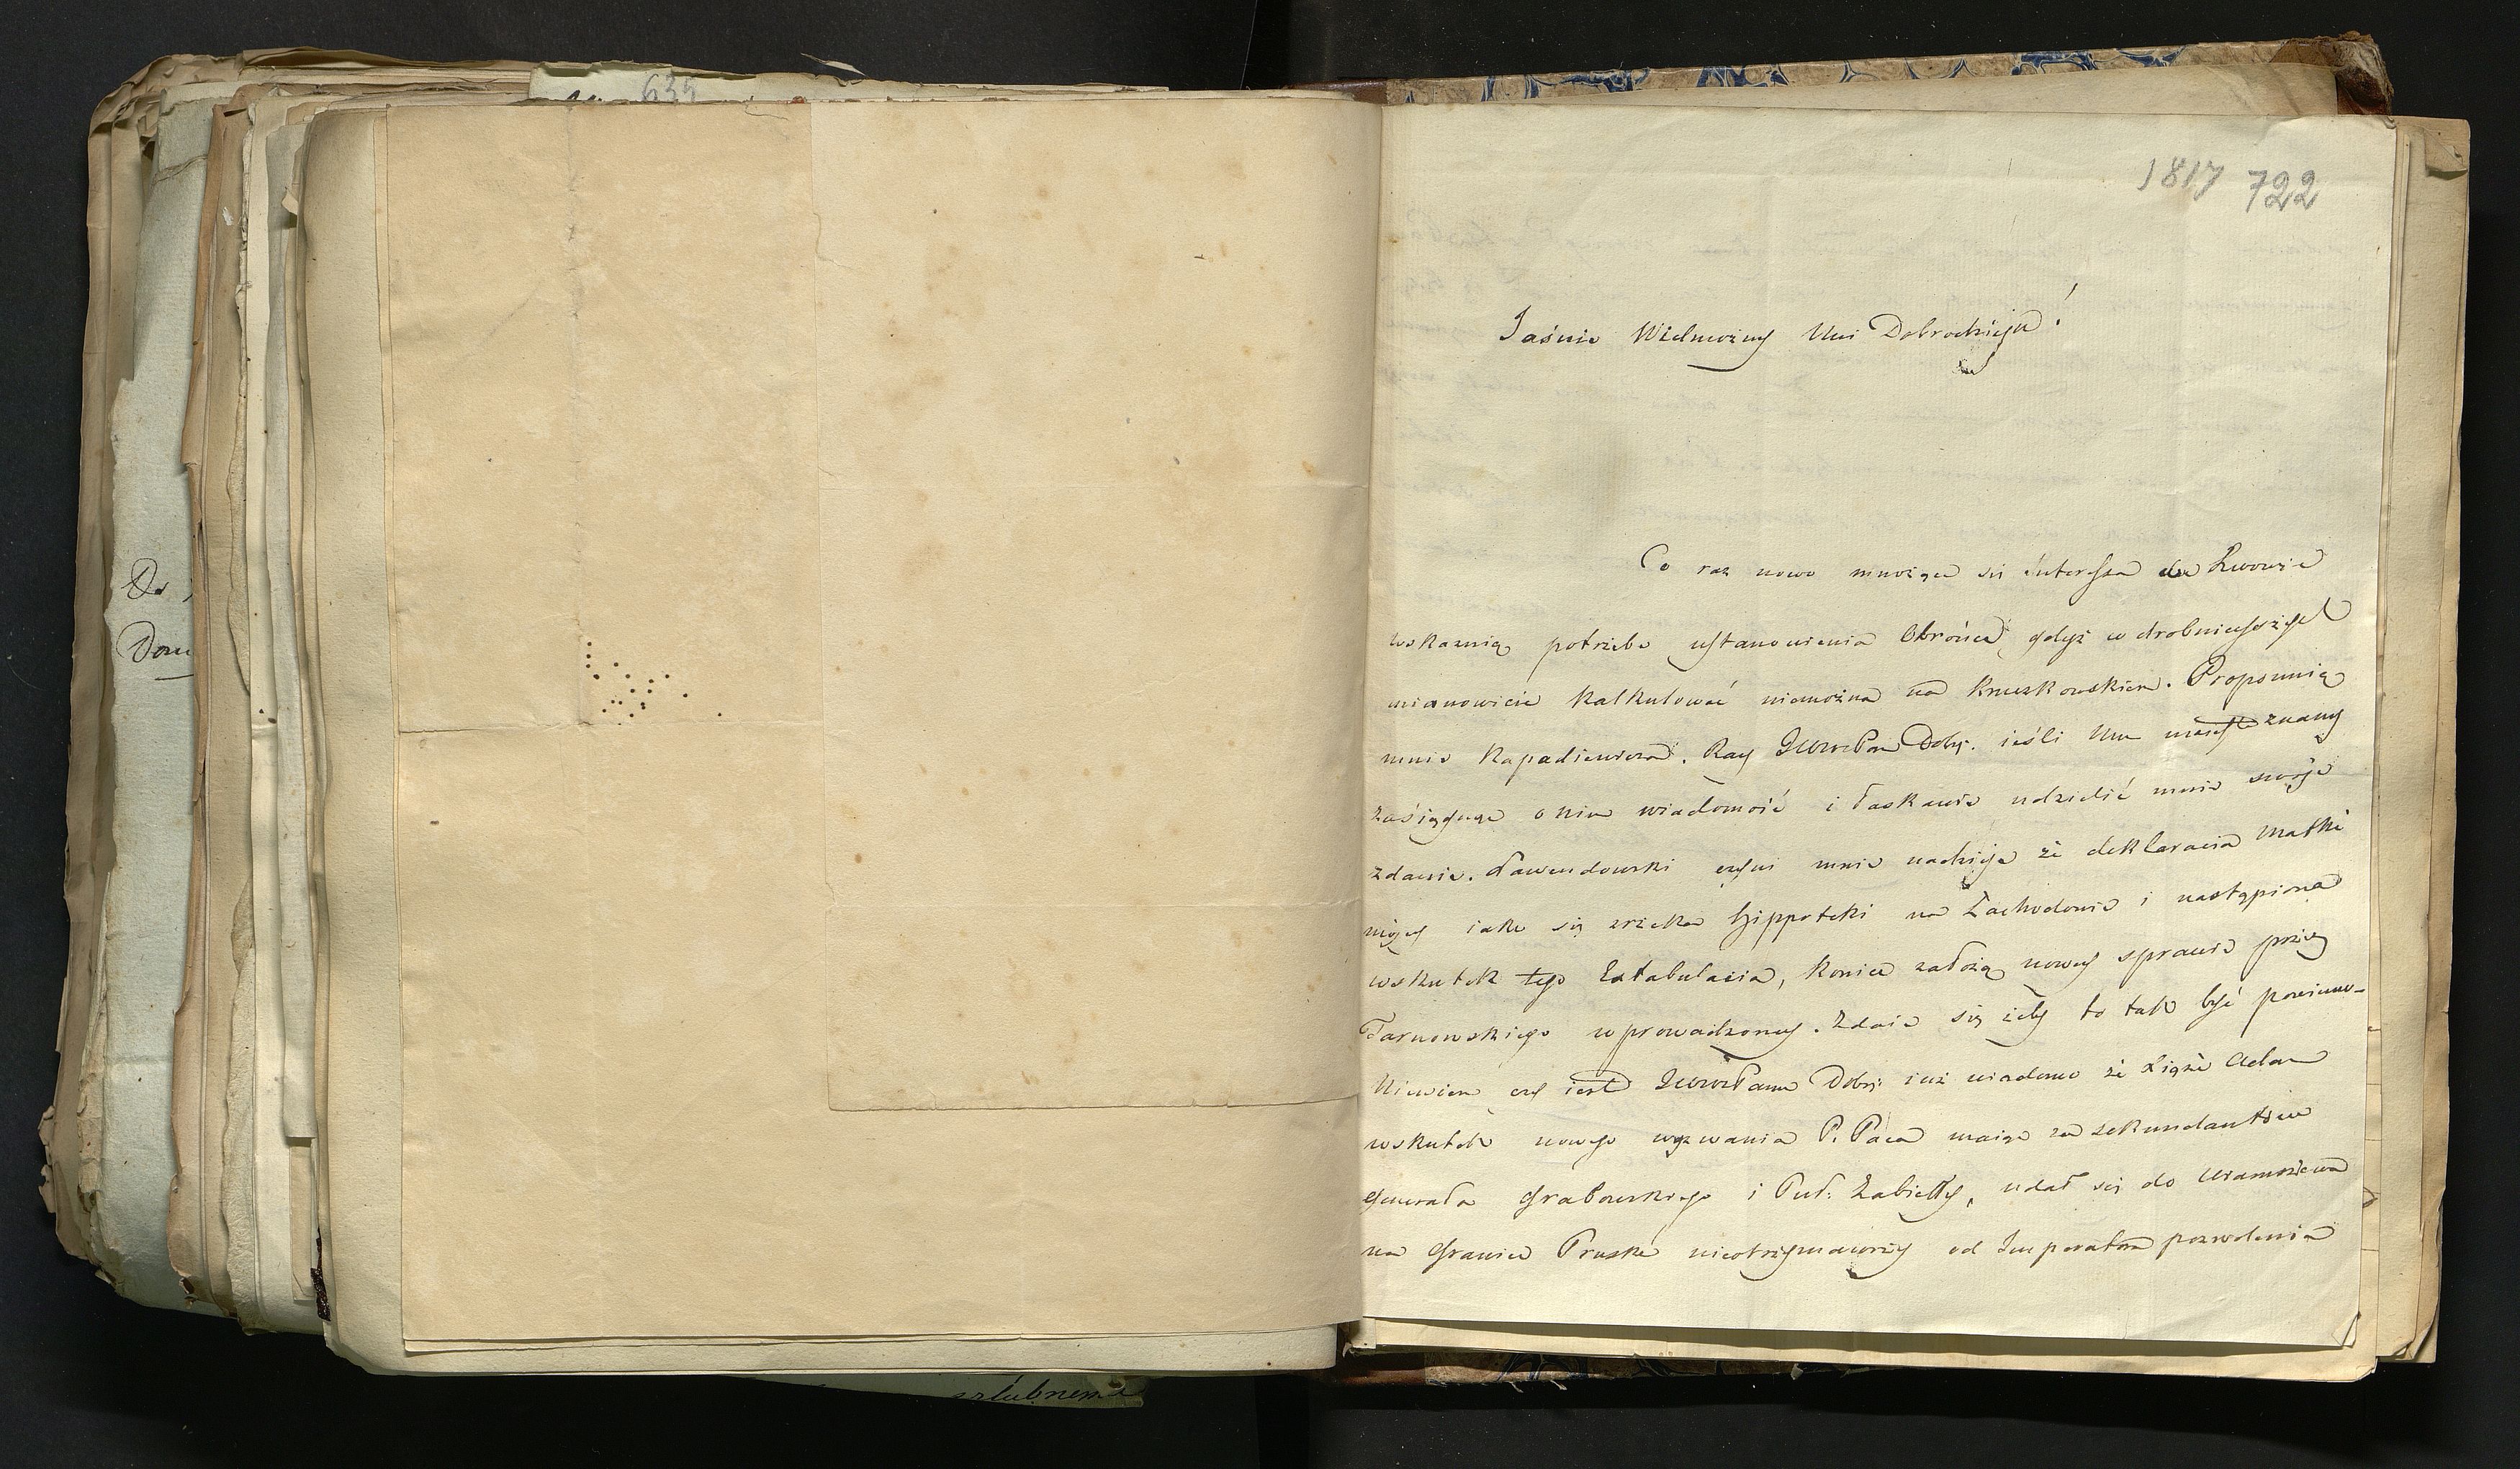 635
Do
Dow
szlubneme
1817 722
Jaśnie Wielmożny Mci Dobrodzieju!
Co raz nowe mnożące się interessa we Lwowie
wskazuią potrzebę ustanowienia Obrońcę, gdyż w drobnieyszych
mianowicie kalkulować niemożna na Kruszkowskiem. Proponuią
mnie Kapadiewicza. Racz JWWPan Dobr. ieśli mu znany
zasięgnąć o nim wiadomość i łaskawie udzielić mnie swoje
zdanie. Tawendowski czyni mnie nadzieje że deklaracia Matki
mojey iako się zrzeka Hippoteki na Zachodowie i nastąpiona
wskutek tego Extabulacia, koniec założą nowey sprawie przez
Tarnowskiego wprowadzoney. Zdaie się żeby to tak być powinno-
Niewiem czy iest JWWPanu Dobr: iuż wiadomo że Xiąże Adam
wskutek nowego wyzwania P. Paca maiąc za sekundantów
Generała Grabowskiego i Puł: Zabiełły, udał się do
na Granice Pruskie nieotrzymawszy od Imperatora pozwolenia